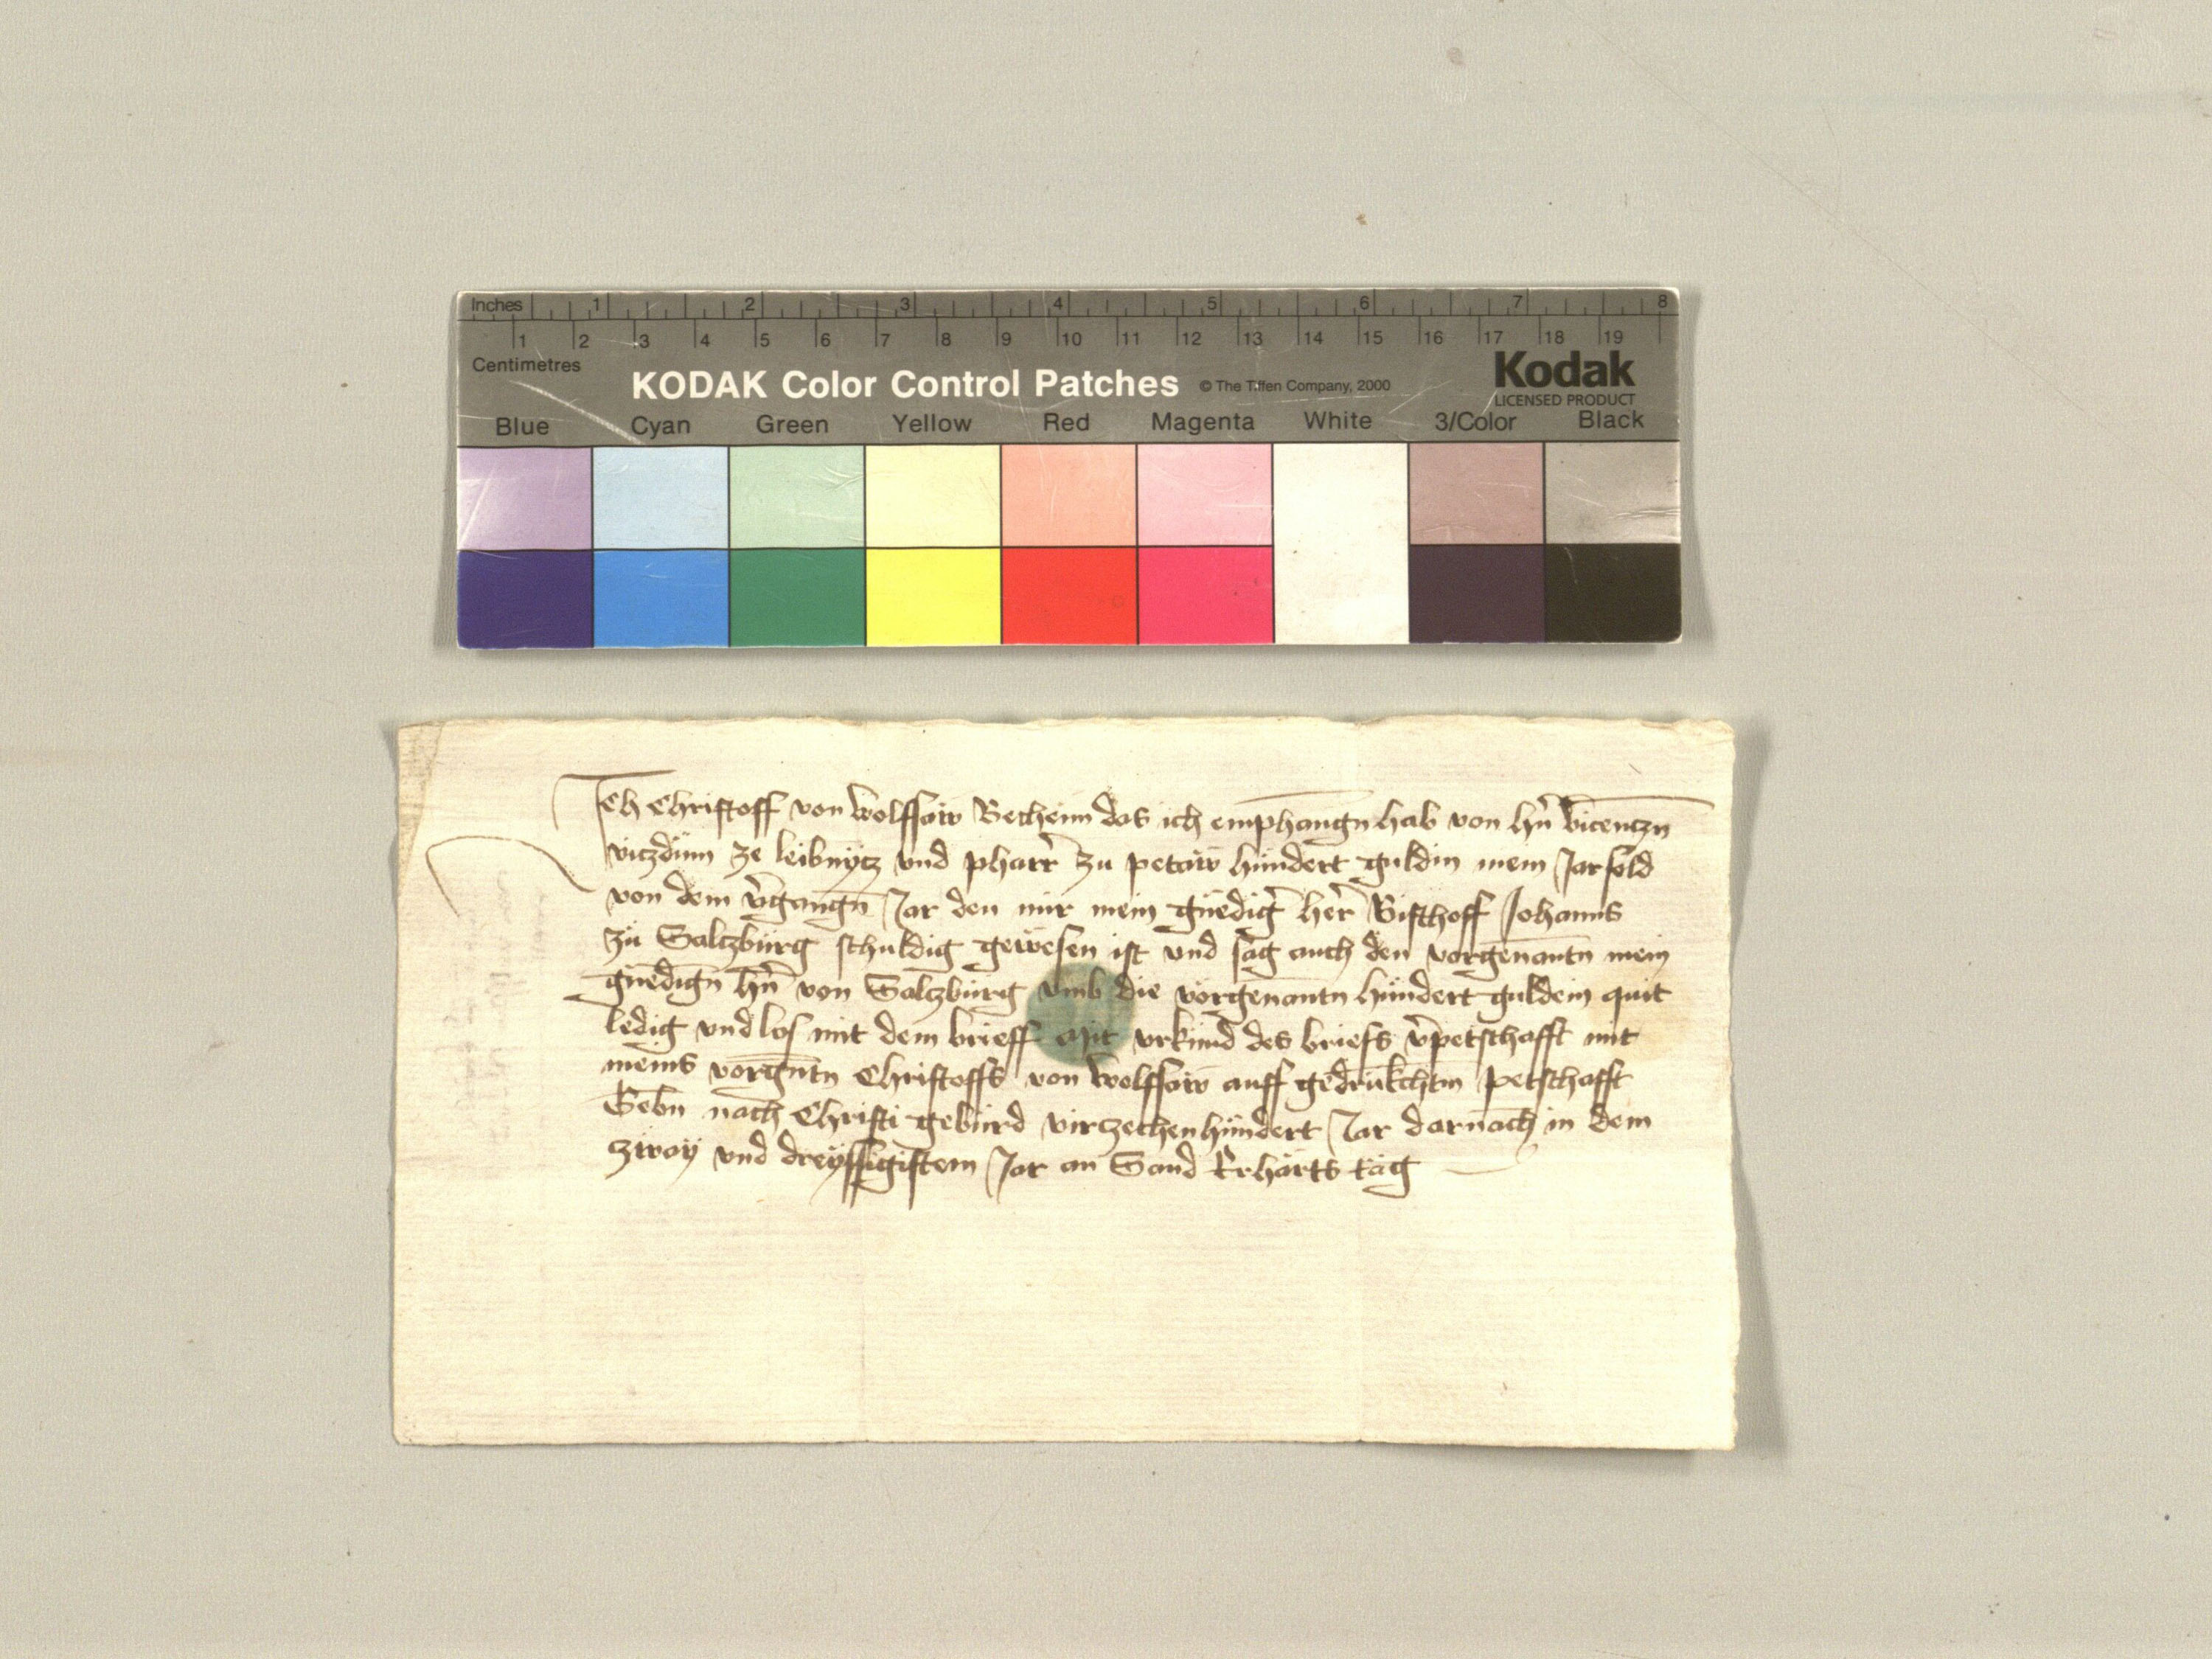 Inches 1 2 3 4 5 6 7 8
1 2 3 4 5 6 7 8 9 10 11 12 13 14 15 16 17 18 19
Centimetres
KODAK Color Control Patches © The Tiffen Company, 2000 Kodak
LICENSED PRODUCT
Blue Cyan Green Yellow Red Magenta White 3/Color Black
Ich Christoff von Wolffaw Bechenn das ich emphangn hab von hn̄ Vicenczn
viczdum ze leibnytz vnd pharr̄ zu petaw hundert guldin mein Jarsold
von dem v̄gangn̄ Jar den mir mein gnediḡ her̄ Bischoff Johanns
zu Salczburg schuldig gewesen ist vnd sag auch den vorgenantn mein
gnedign̄ hn̄ von Salczburg vmb die vorgenantn hundert guldein quit
ledig vnd los mit dem brieff Mit vrkund des briefs v̄petschafft mit
meins vorgn̄tn Christoffs von Wolffaw auff gedrukchtm petschafft
Gebn nach Christi geburd virczechenhundert Jar darnach in dem
zway vnd dreyssigistem Jar an Sand Erharts tag